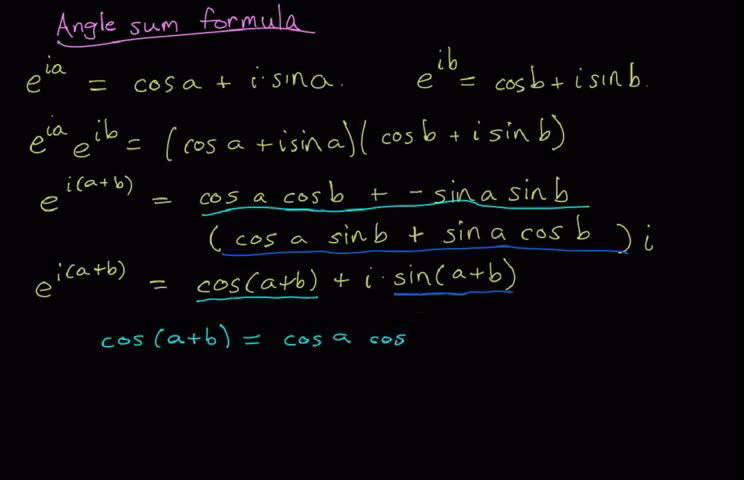 Angle sum formula
e^{ia} = cos a + i · sin a. e^{ib} = cos b + i sin b.
e^{ia} e^{ib} = (cos a + i sin a)(cos b + i sin b)
e^{i(a+b)} = cos a cos b + - sin a sin b
(cos a sin b + sin a cos b) i
e^{i(a+b)} = cos(a+b) + i · sin(a+b)
cos(a+b) = cos a cos